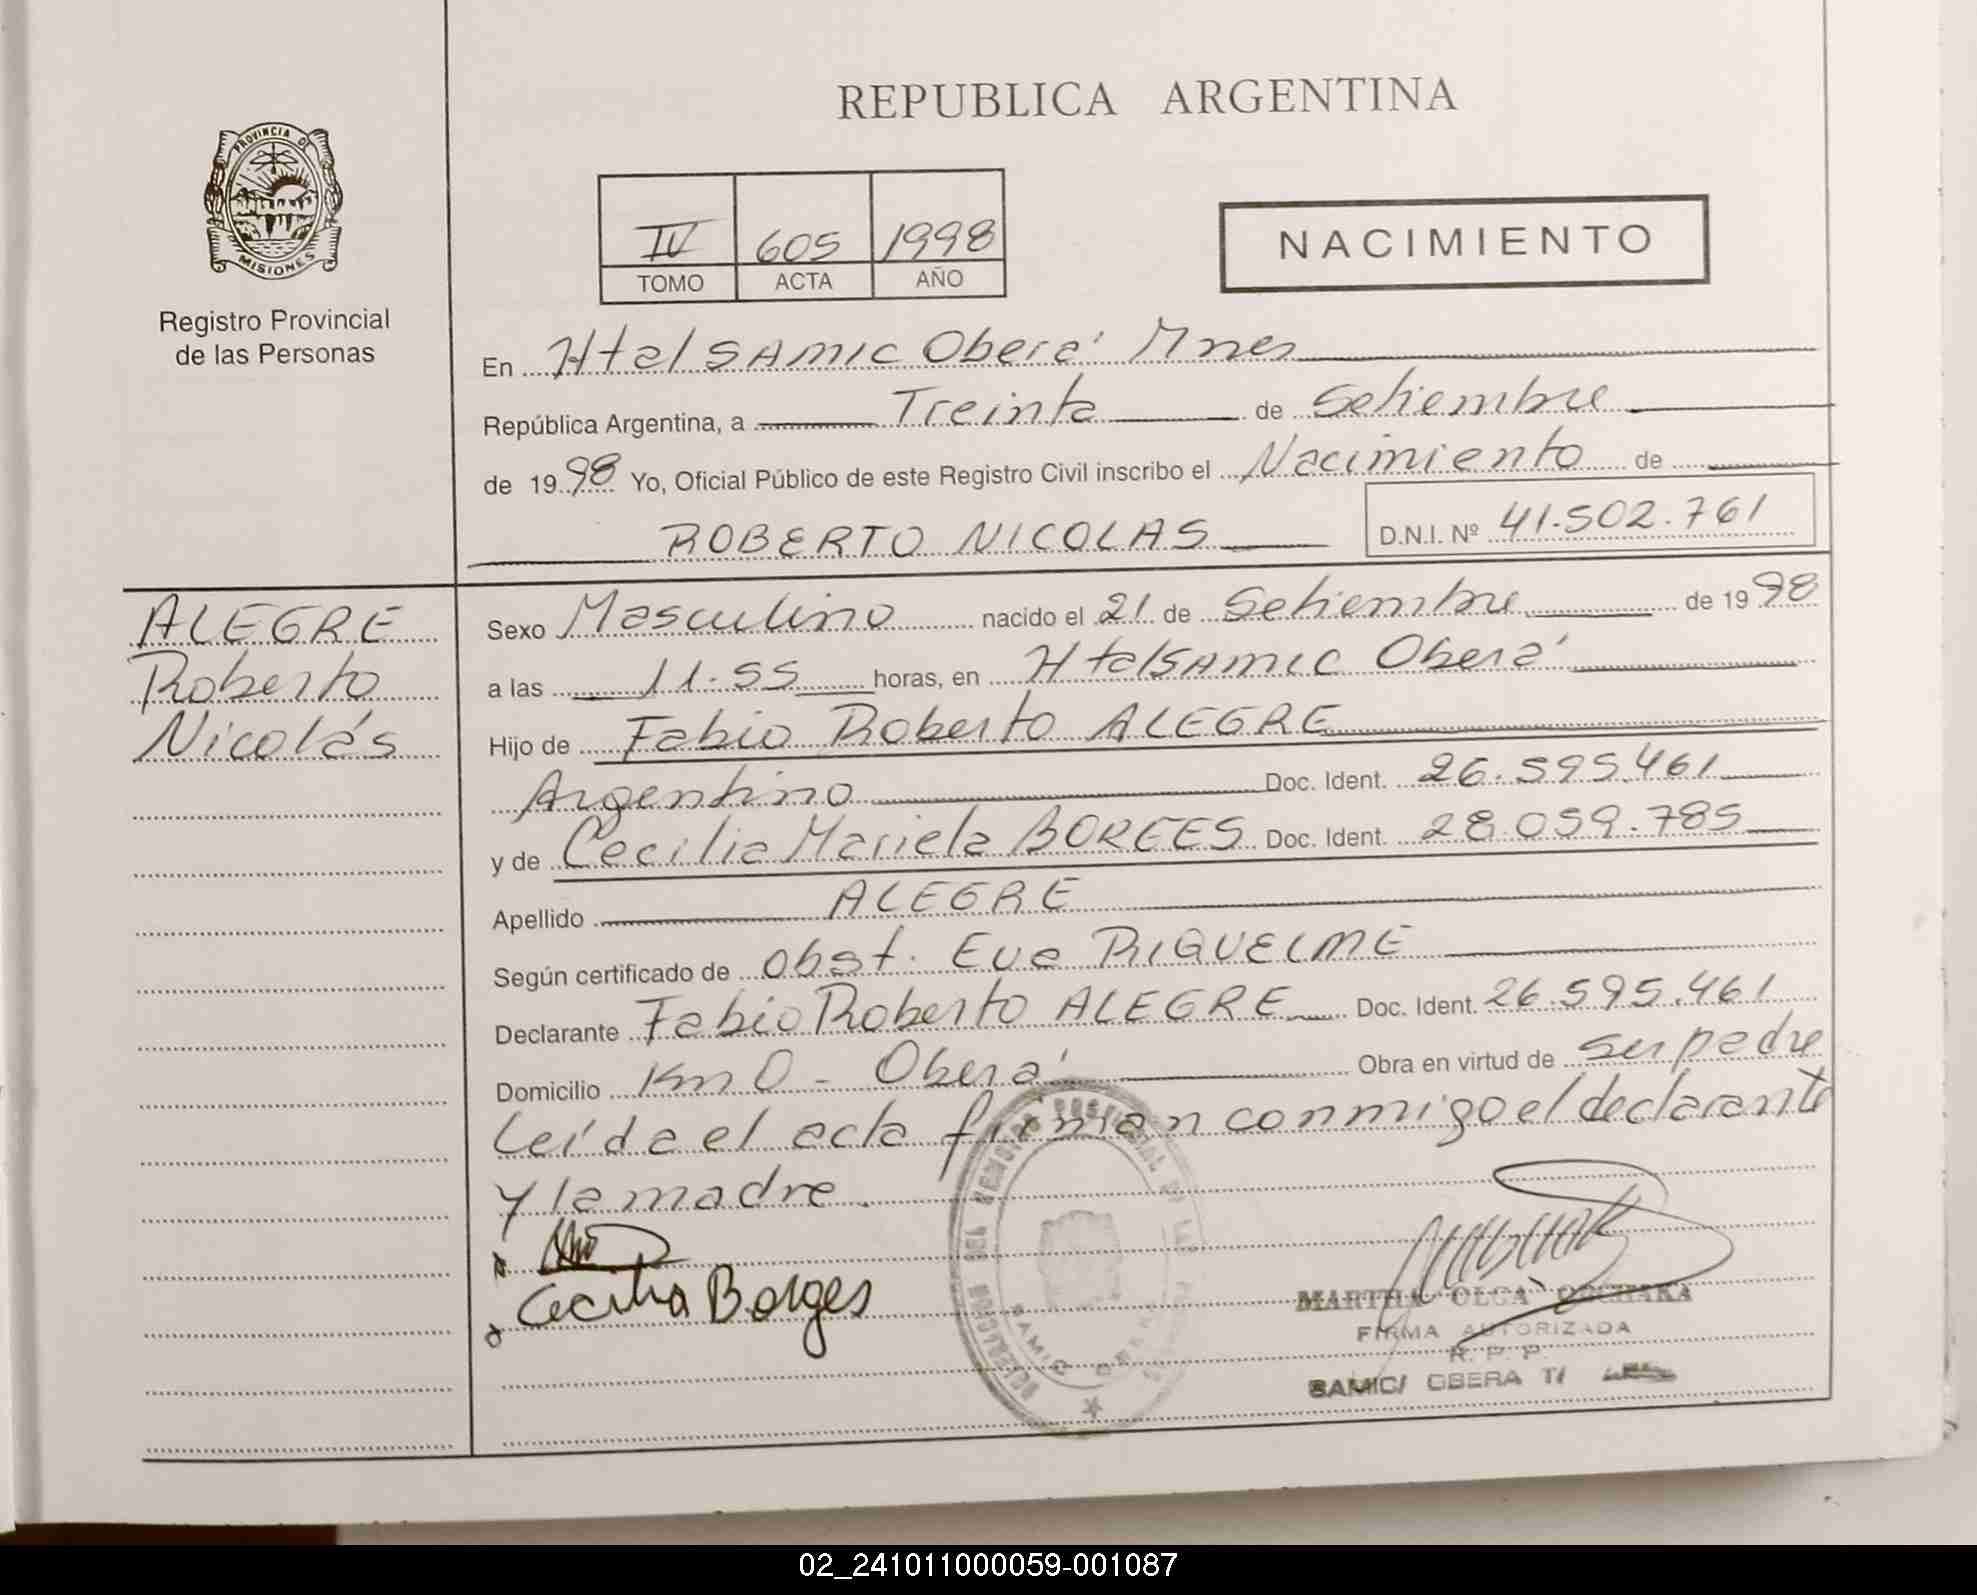 REPUBLICA ARGENTINA
PROVINCIA DE
MISIONES
Registro Provincial
de las Personas
IV 605 1998
TOMO ACTA AÑO
NACIMIENTO
En Htal SAMIC Oberá Mnes
República Argentina, a Treinta de Setiembre
de 1998 Yo, Oficial Público de este Registro Civil inscribo el Nacimiento de
ROBERTO NICOLAS D.N.I. Nº 41.502.761
ALEGRE
Roberto
Nicolás
Sexo Masculino nacido el 21 de Setiembre de 1998
a las 11.55 horas, en Htal SAMIC Oberá
Hijo de Fabio Roberto ALEGRE
Argentino Doc. Ident. 26.595.461
y de Cecilia Mariela BORGES Doc. Ident. 28.059.785
Apellido ALEGRE
Según certificado de Obst. Eva RIQUELME
Declarante Fabio Roberto ALEGRE Doc. Ident. 26.595.461
Domicilio Km 0 - Oberá Obra en virtud de ser padre
Leída el acta firman conmigo el declarante
y la madre.
Cecilia Borges
MARTHA OLGA
FIRMA AUTORIZADA
R. P. P.
SAMIC/ OBERA T/
SAMIC OBERA
02_241011000059-001087